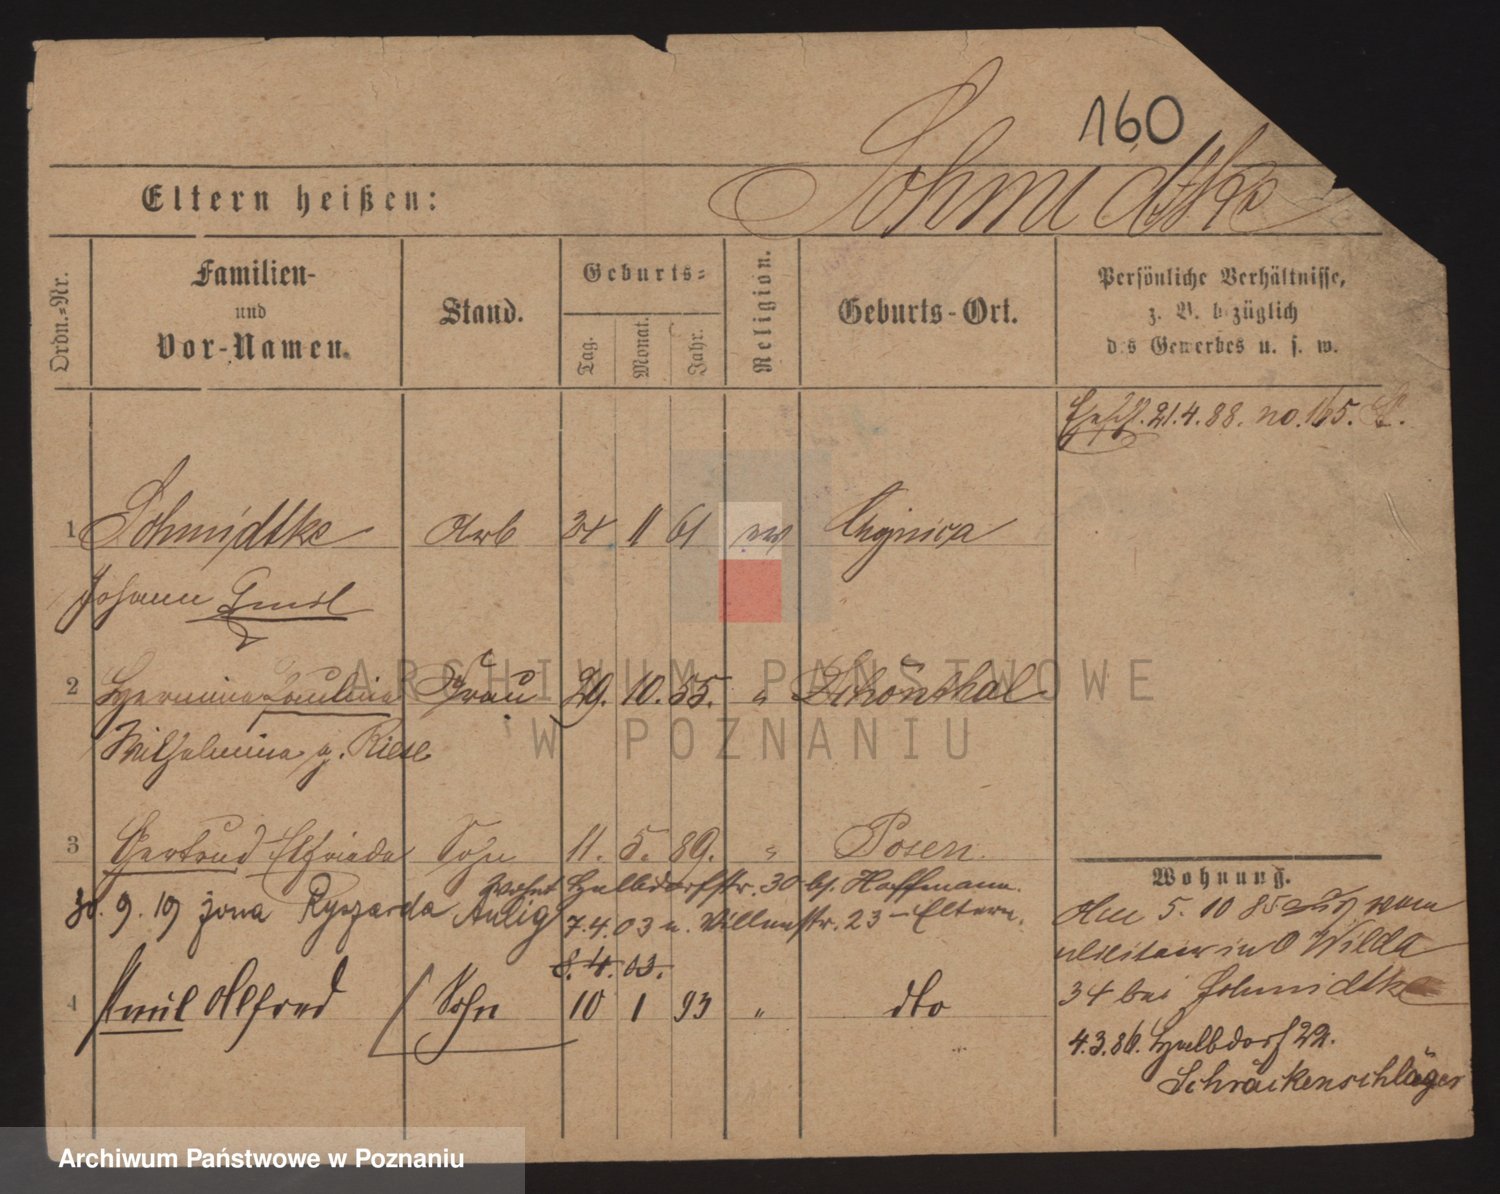 160
Schmidtke
Eltern heißen:
Ordn.-Nr.
Familien-
und
Vor-Namen.
Stand.
Geburts-
Tag.
Monat.
Jahr.
Religion.
Geburts-Ort.
Persönliche Verhältnisse,
z. B. bezüglich
des Gewerbes u. s. w.
21.4.88. no. 165.
1 Schmidtke Arb 24 11 61 ev Chojnica
Johann Emil
2 Hermine Pauline Frau 29. 10. 55. " Schönthal
Wilhelmine g. Riese
3 Gertrud Elfriede Sohn 11. 5. 89. " Posen.
wohnt Halbdorfstr. 30 bs. Hoffmann.
30. 9. 19 żona Ryszarda Aulig
7.4.03 n. Villenstr. 23 - Eltern.
8.4.03.
4 Emil Alfred Sohn 10 1 93 " dto
Wohnung.
Am 5. 10 85 zug. vom
militair in O Wilda
34 bei Schmidtke
4.3.86. Halbdorf 22.
Schräckenschläger
ARCHIWUM PAŃSTWOWE
W POZNANIU
Archiwum Państwowe w Poznaniu